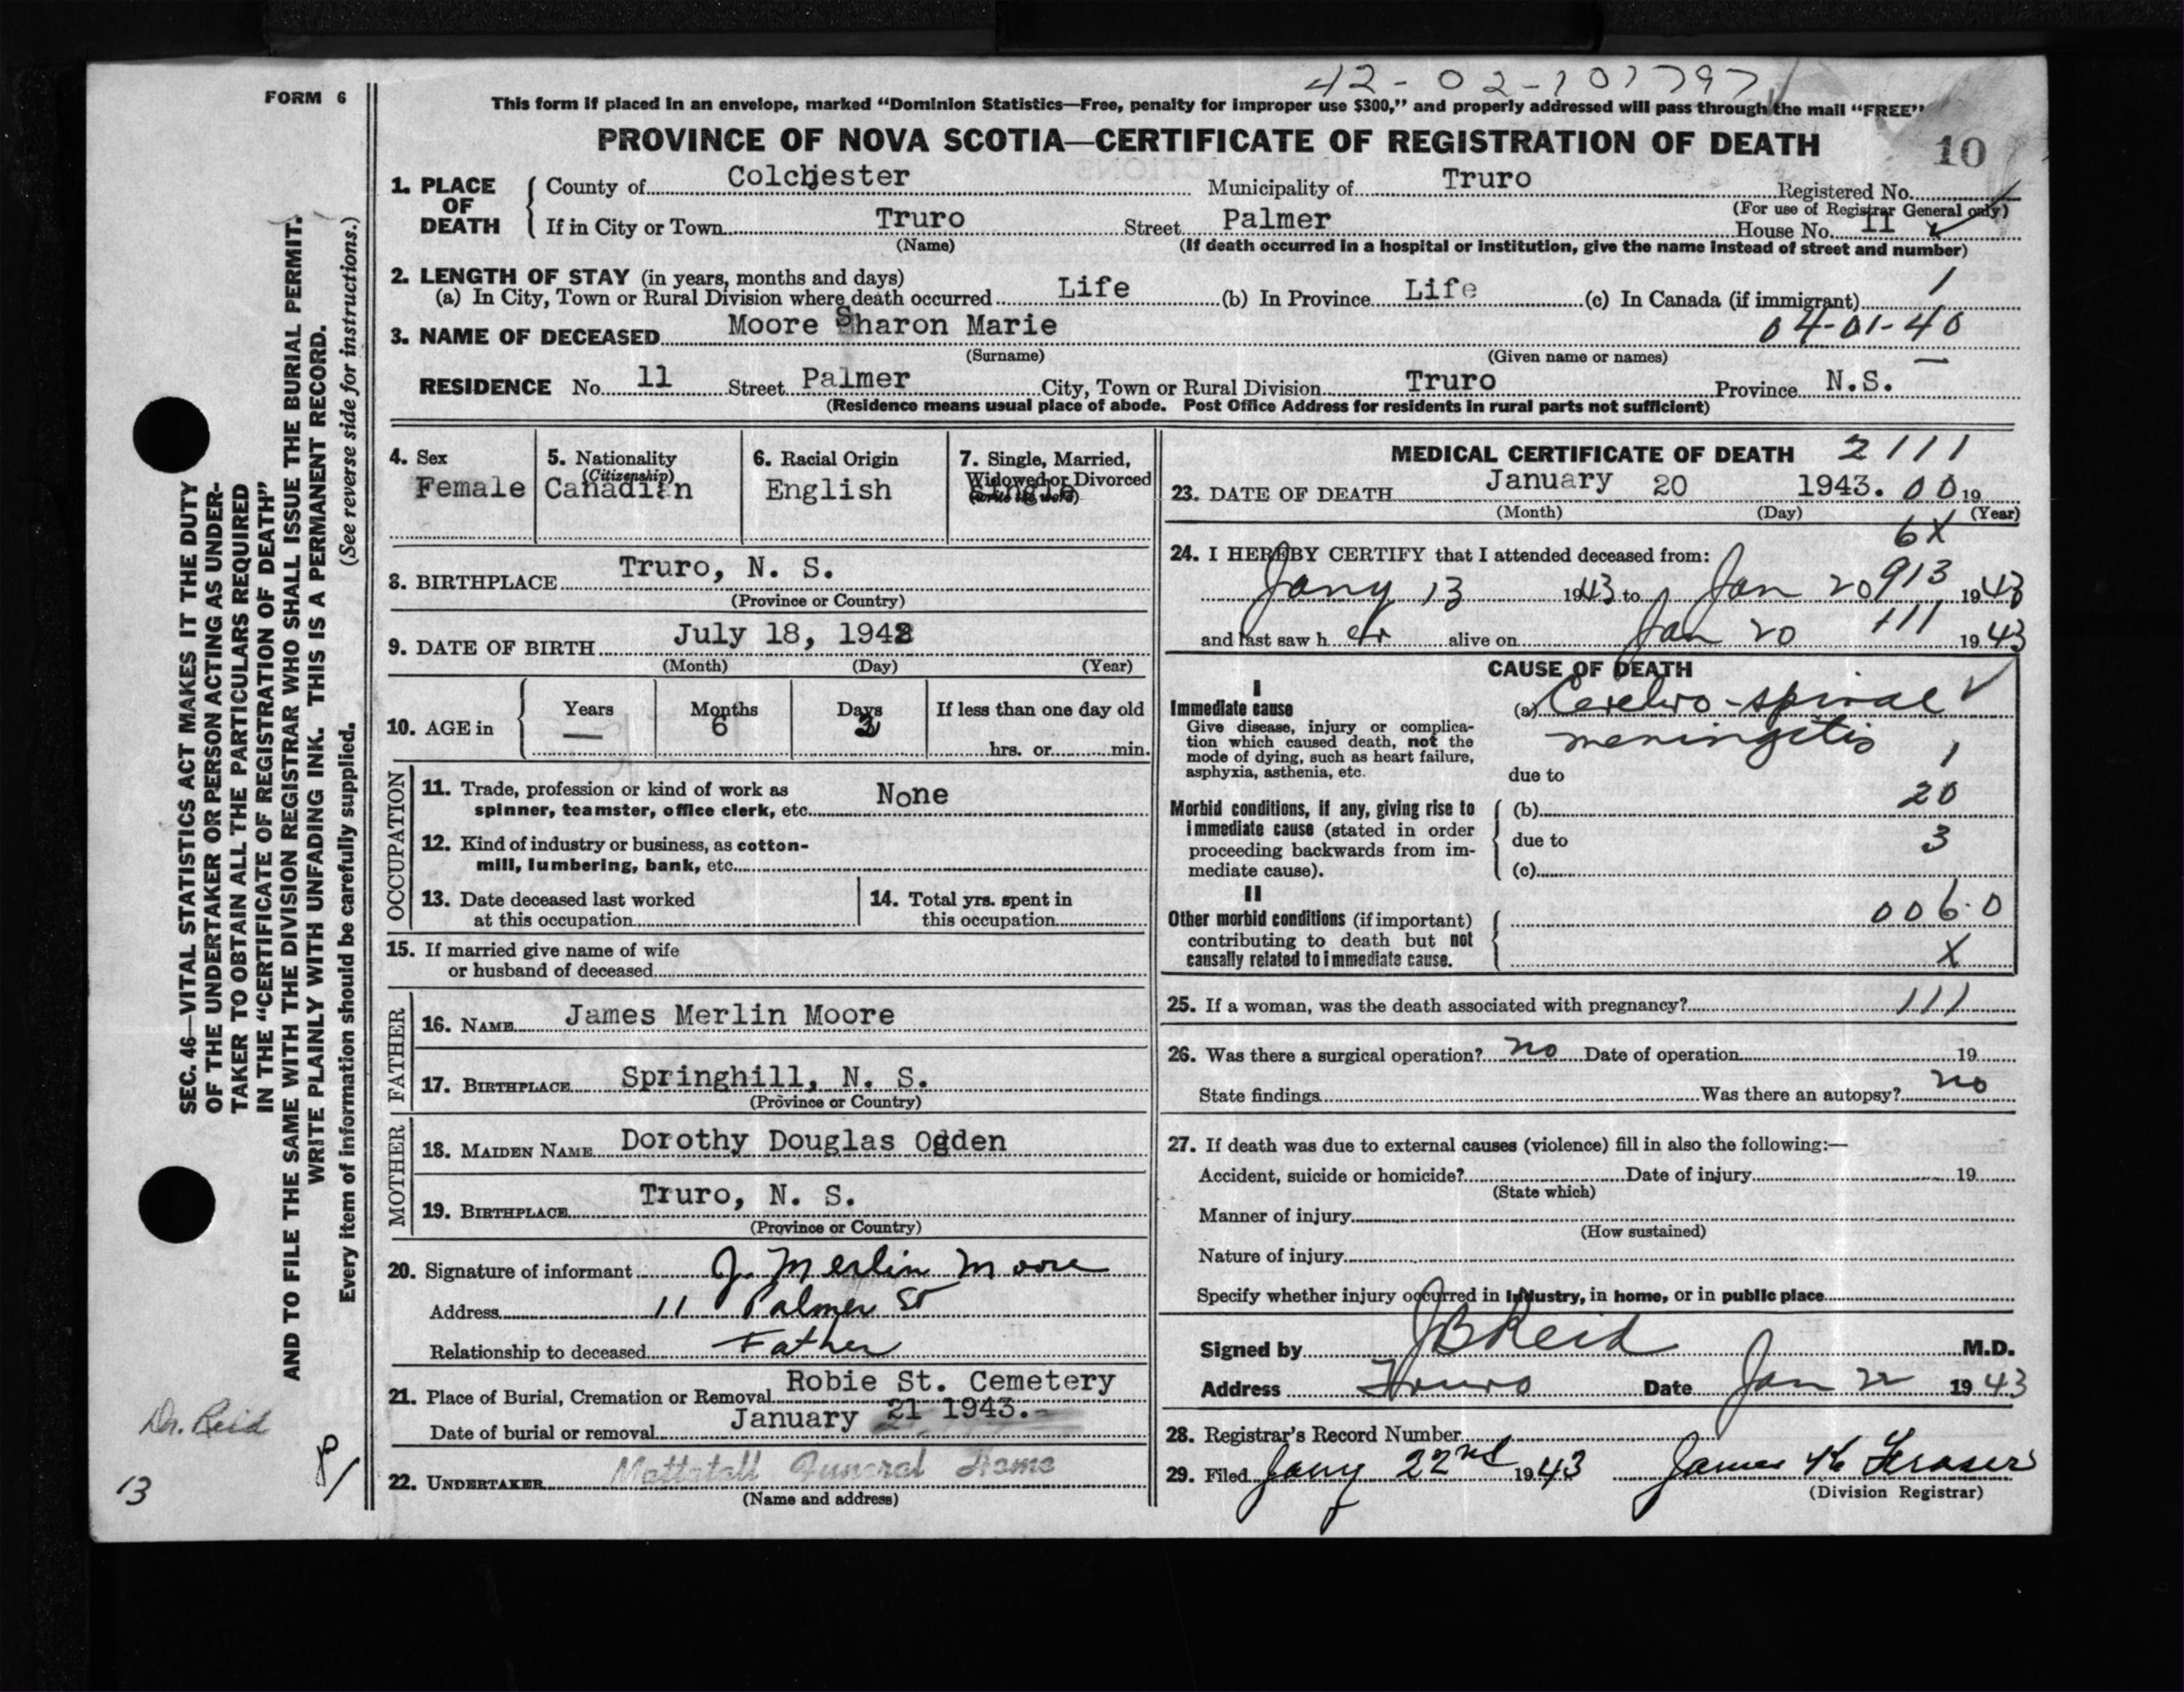 42-02-101797
FORM 6
This form if placed in an envelope, marked “Dominion Statistics—Free, penalty for improper use $300,” and properly addressed will pass through the mail “FREE”
PROVINCE OF NOVA SCOTIA—CERTIFICATE OF REGISTRATION OF DEATH 10
1. PLACE OF DEATH
County of Colchester Municipality of Truro Registered No.
(For use of Registrar General only)
If in City or Town Truro Street Palmer House No. 11
(Name) (If death occurred in a hospital or institution, give the name instead of street and number)
2. LENGTH OF STAY (in years, months and days)
(a) In City, Town or Rural Division where death occurred Life (b) In Province Life (c) In Canada (if immigrant) 1
3. NAME OF DECEASED Moore Sharon Marie 04-01-40
(Surname) (Given name or names)
RESIDENCE No. 11 Street Palmer City, Town or Rural Division Truro Province N.S.
(Residence means usual place of abode. Post Office Address for residents in rural parts not sufficient)
4. Sex
Female
5. Nationality
(Citizenship)
Canadian
6. Racial Origin
English
7. Single, Married,
Widowed or Divorced
(write the word)
Single
8. BIRTHPLACE Truro, N. S.
(Province or Country)
9. DATE OF BIRTH July 18, 1942
(Month) (Day) (Year)
10. AGE in
Years Months Days If less than one day old
— 6 2 hrs. or min.
OCCUPATION
11. Trade, profession or kind of work as
spinner, teamster, office clerk, etc. None
12. Kind of industry or business, as cotton-
mill, lumbering, bank, etc.
13. Date deceased last worked
at this occupation
14. Total yrs. spent in
this occupation
15. If married give name of wife
or husband of deceased
FATHER
16. NAME James Merlin Moore
17. BIRTHPLACE Springhill, N. S.
(Province or Country)
MOTHER
18. MAIDEN NAME Dorothy Douglas Ogden
19. BIRTHPLACE Truro, N. S.
(Province or Country)
20. Signature of informant J. Merlin Moore
Address 11 Palmer St
Relationship to deceased Father
21. Place of Burial, Cremation or Removal Robie St. Cemetery
Date of burial or removal January 21 1943.
22. UNDERTAKER Mattatall Funeral Home
(Name and address)
MEDICAL CERTIFICATE OF DEATH 2111
23. DATE OF DEATH January 20 1943. 00 19
(Month) (Day) (Year)
6X
24. I HEREBY CERTIFY that I attended deceased from:
Jany 13 1943 to Jan 20 913 1943
and last saw her alive on Jan 20 111 1943
CAUSE OF DEATH
I
Immediate cause
Give disease, injury or complica-
tion which caused death, not the
mode of dying, such as heart failure,
asphyxia, asthenia, etc.
(a) Cerebro-spinal
meningitis 1
due to
Morbid conditions, if any, giving rise to
immediate cause (stated in order
proceeding backwards from im-
mediate cause).
(b) 20
due to 3
(c)
II
Other morbid conditions (if important)
contributing to death but not
causally related to immediate cause.
006.0
X
25. If a woman, was the death associated with pregnancy? 111
26. Was there a surgical operation? no Date of operation 19
State findings Was there an autopsy? no
27. If death was due to external causes (violence) fill in also the following:—
Accident, suicide or homicide? Date of injury 19
(State which)
Manner of injury
(How sustained)
Nature of injury
Specify whether injury occurred in industry, in home, or in public place
Signed by JB Reid M.D.
Address Truro Date Jan 22 1943
28. Registrar's Record Number
29. Filed Jany 22nd 1943 James K Fraser
(Division Registrar)
SEC. 46—VITAL STATISTICS ACT MAKES IT THE DUTY
OF THE UNDERTAKER OR PERSON ACTING AS UNDER-
TAKER TO OBTAIN ALL THE PARTICULARS REQUIRED
IN THE “CERTIFICATE OF REGISTRATION OF DEATH”
AND TO FILE THE SAME WITH THE DIVISION REGISTRAR WHO SHALL ISSUE THE BURIAL PERMIT.
WRITE PLAINLY WITH UNFADING INK. THIS IS A PERMANENT RECORD.
Every item of information should be carefully supplied. (See reverse side for instructions.)
Dr. Reid
13